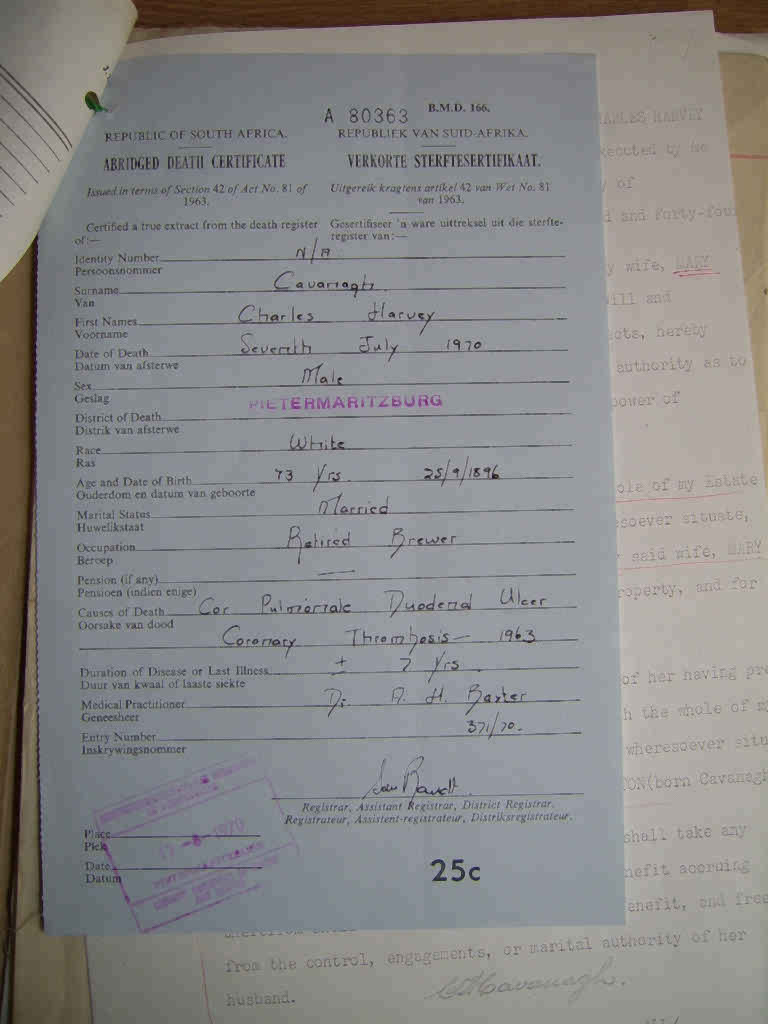 A 80363 B.M.D. 166.
REPUBLIC OF SOUTH AFRICA. REPUBLIEK VAN SUID-AFRIKA.
ABRIDGED DEATH CERTIFICATE VERKORTE STERFTESERTIFIKAAT.
Issued in terms of Section 42 of Act No. 81 of Uitgereik kragtens artikel 42 van Wet No. 81
1963. van 1963.
Certified a true extract from the death register Gesertifiseer 'n ware uittreksel uit die sterfte-
of:— register van:—
Identity Number N/A
Persoonsnommer
Surname Cavanagh
Van
First Names Charles Harvey
Voorname
Date of Death Seventh July 1970
Datum van afsterwe
Sex Male
Geslag
District of Death PIETERMARITZBURG
Distrik van afsterwe
Race White
Ras
Age and Date of Birth 73 Yrs. 25/9/1896
Ouderdom en datum van geboorte
Marital Status Married
Huwelikstaat
Occupation Retired Brewer
Beroep
Pension (if any) —
Pensioen (indien enige)
Causes of Death Cor Pulmonale Duodenal Ulcer
Oorsake van dood
Coronary Thrombosis — 1963
Duration of Disease or Last Illness ± 7 Yrs.
Duur van kwaal of laaste siekte
Medical Practitioner Dr. A. H. Baxter
Geneesheer
Entry Number 371/70.
Inskrywingsnommer
Registrar, Assistant Registrar, District Registrar.
Registrateur, Assistent-registrateur, Distriksregistrateur.
Place
Plek
-8-1970
Date
Datum
25c
HARVEY
executed by me
of
and forty-four
wife, MARY
will and
hereby
authority as to
power of
of my Estate
situate,
said wife, MARY
property, and for
of her having pre
the whole of my
wheresoever situ
(born Cavanagh
shall take any
accruing
and free
from the control, engagements, or marital authority of her
husband.
CHCavanagh.